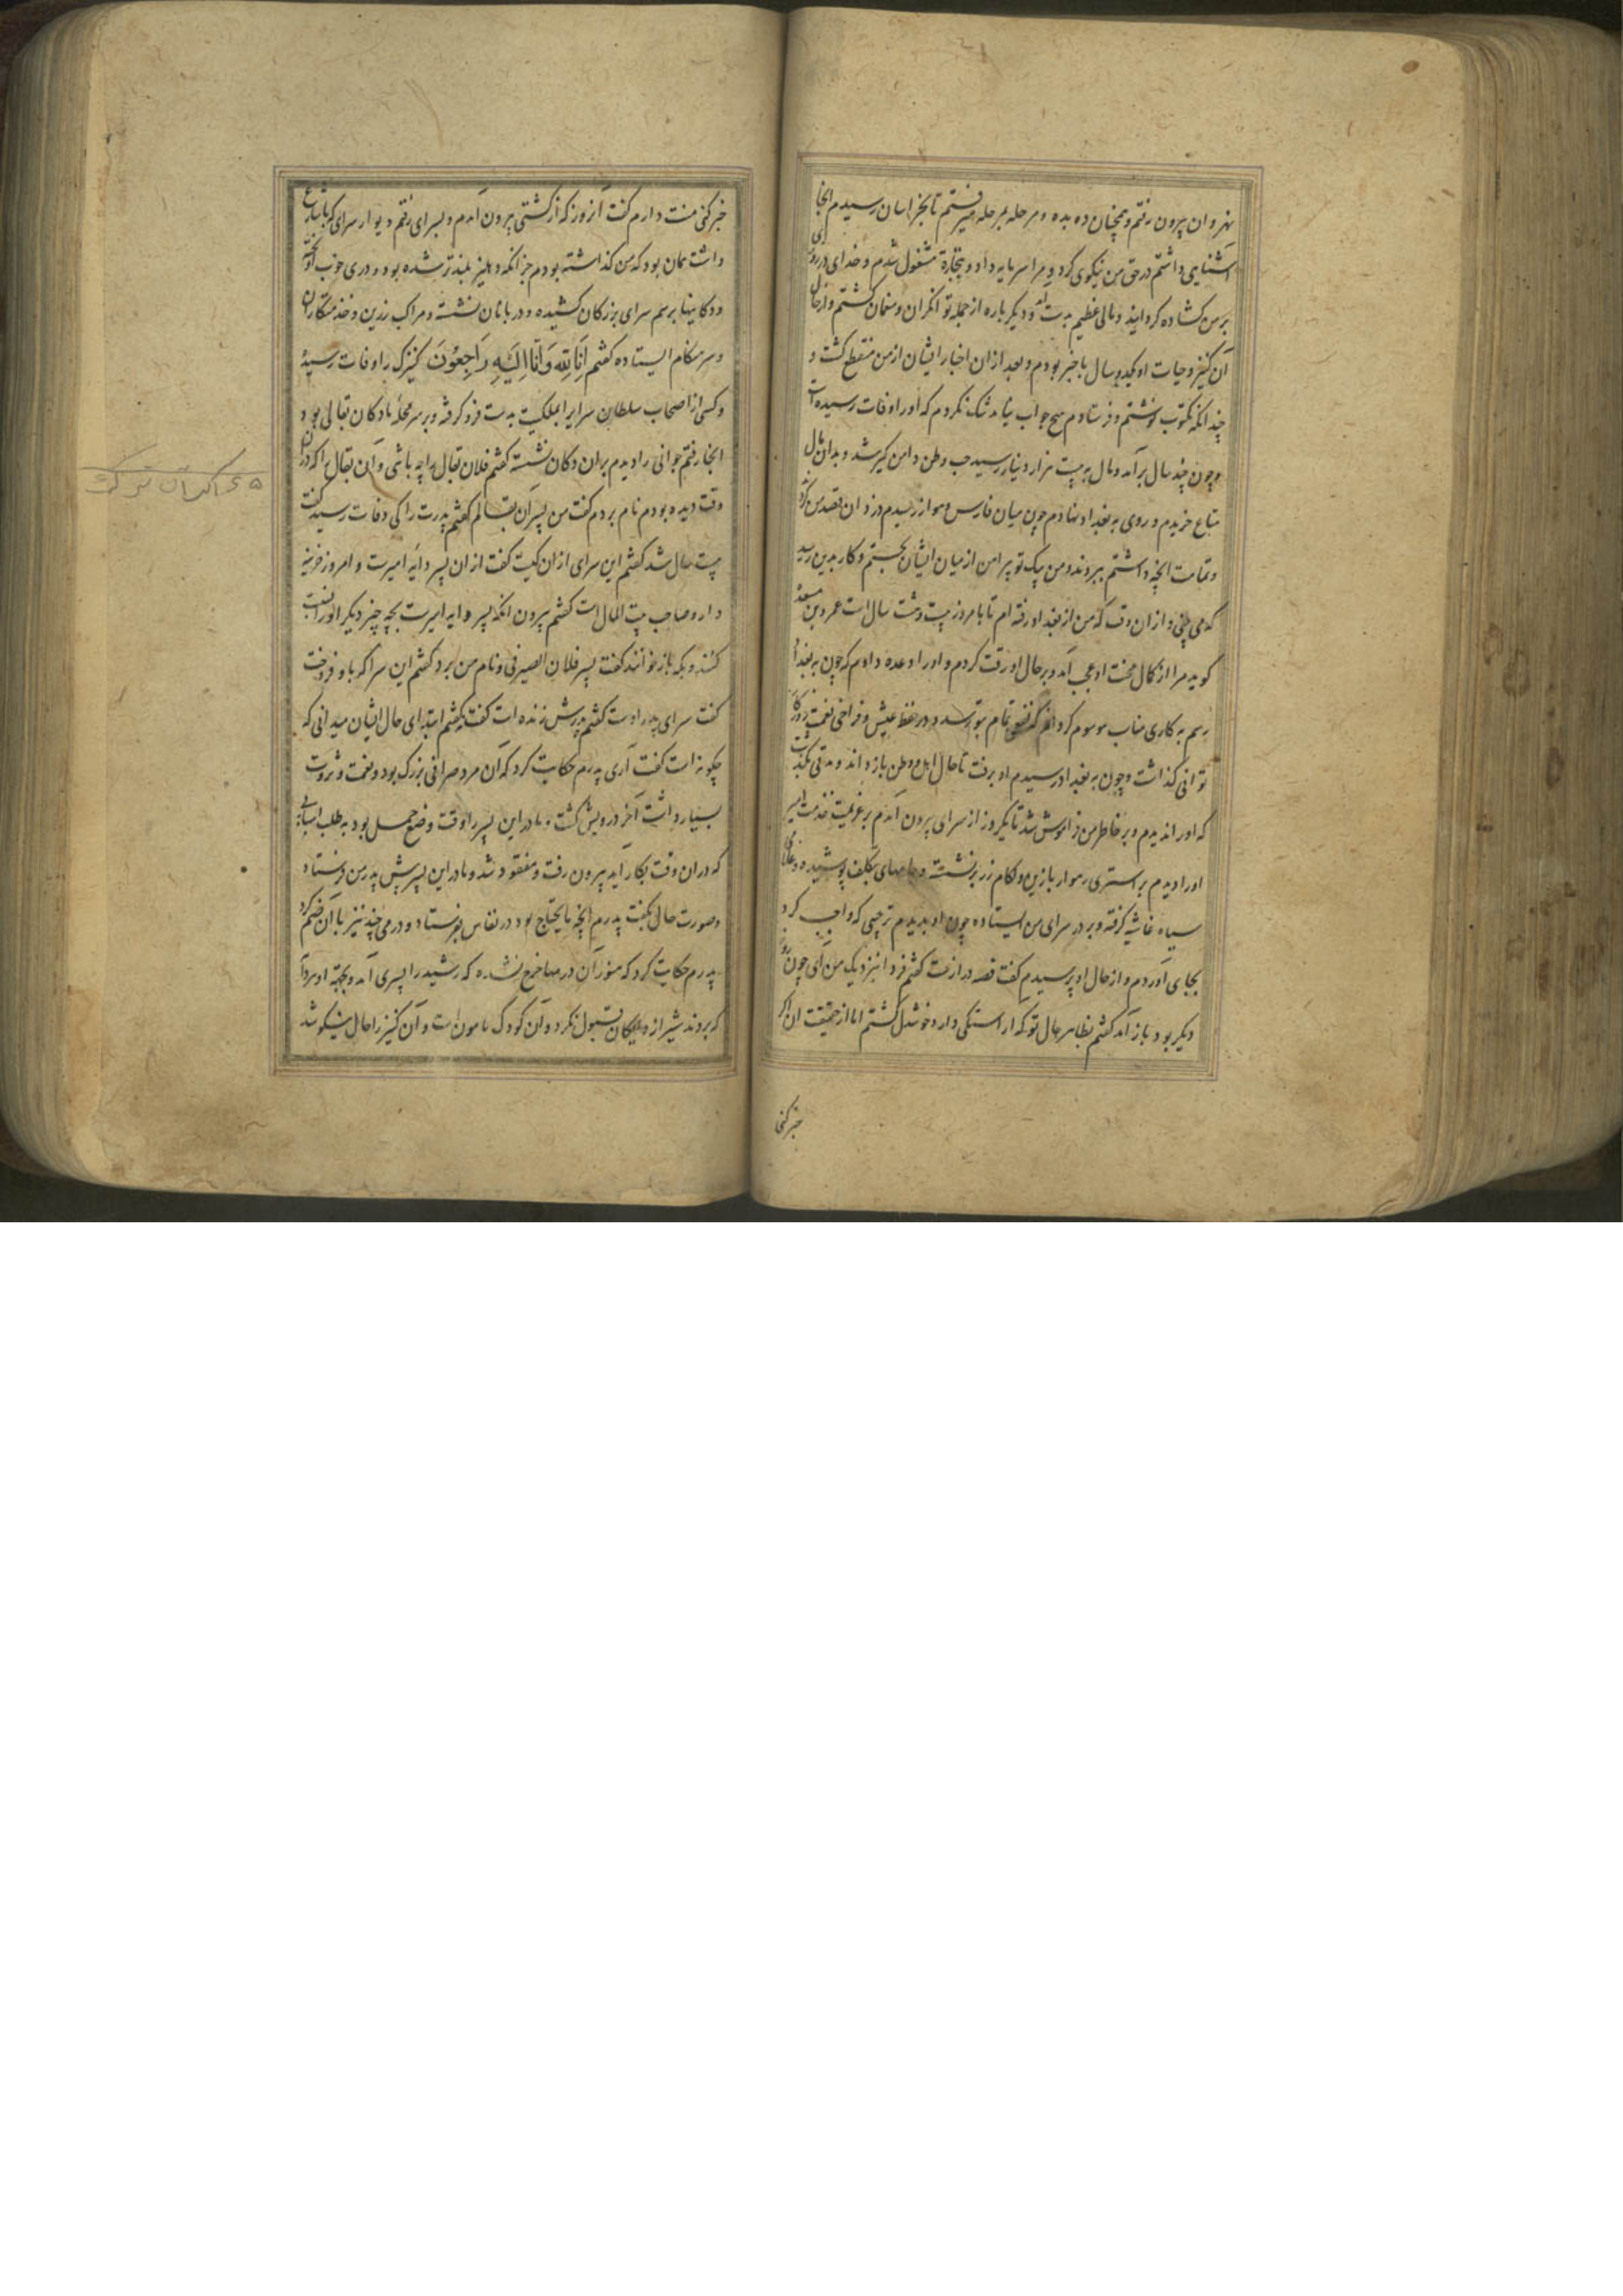 نهروان بیرون رفتم و همچنان ده بده و مرحله بمرحله میرفتم تا بخراسان رسیدم انجا
آشنایی داشتم در حق من نیکوی کرد و مرا سرمایه داد و بتجارة مشغول شدم و خدای در روزی
بر من کشاده کردانید و مالی عظیم بدست آمد و دیکر باره از جمله توانکران و منعمان کشتم و از حال
آن کنیز و حیات او یکدو سال با خبر بودم و بعد از ان اخبار ایشان از من منقطع کشت و
چندانکه مکتوب نوشتم و فرستادم هیچ جواب نیامد شک نکردم که او را وفات رسیده است
و چون چند سال برآمد و مال به بیست هزار دینار رسید حب وطن دامن کیر شد و بدان مال
متاع خریدم و روی به بغداد نهادم چون میان فارس و اهواز رسیدم دزدان قصد من کردند
و تمامت انچه داشتم ببردند و من بیک تو پیراهن از میان ایشان بجستم و کار بدین رسید
که می بینی و از ان وقت که من از بغداد رفته ام تا بامروز بیست و هشت سال است عمرو بن مسعده
کوید مرا از کمال محنت او عجب آمد و بر حال او رقت کردم و او را وعده دادم که چون به بغداد
رسم به کاری مناسب موسوم کردانم که نفعی تمام بتو رسد و در خفظ عیش و فراخی نعمت روزکار
توانی کذاشت و چون به بغداد رسیدم او برفت تا حال اهل و وطن باز داند و مدتی بگذشت
که او را ندیدم و بر خاطر من فراموش شد تا یکروز از سرای بیرون آمدم بر عزیمت خدمت امیر
او را دیدم بر استری رهوار با زین و لکام زر بر نشسته و جامهای بتکلف پوشیده و غلامی
سیاه غاشیه کرفته و بر در سرای من ایستاده چون او بدیدم ترحیبی که واجب کرد
بجای آوردم و از حال او پرسیدم کفت قصه دراز است کفتم فردا نزدیک من آی چون روز
دیکر بود باز آمد کفتم بظاهر حال تو که اراستکی دارد خوشدل کشتم اما از حقیقت ان اکر
خبر کنی
خبر کنی منت دارم کفت آنروز که از کشتی بیرون آمدم و بسرای رفتم دیوار سرای که باشارع
داشت همان بود که من کذاشته بودم جز انکه دهلیز بلندتر شده بود و دری خوب آویخته
و دکانیها برسم سرای بزرکان کشیده و دربانان نشسته و مراکب زرین و خدمتکاران
و سرهنکان ایستاده کفتم اِنّا لِلّه وَاِنّا اِلَیْهِ رَاجِعُونَ کنیزک را وفات رسید
و کسی از اصحاب سلطان سرایرا بملکیت بدست فرو کرفته و بر سر محله ما دکان بقالی بود
انجا رفتم جوانی را دیدم بران دکان نشسته کفتم فلان بقال را چه باشی و آن بقال را که دران
وقت دیده بودم نام بردم کفت من پسر آن بقالم کفتم پدرت را کی وفات رسید کفت
بیست سال شد کفتم این سرای از ان کیست کفت از ان پسر دایۀ امیرست و امروز خزینه
دار و صاحب بیت المال است کفتم بیرون انکه پسر دایه امیرست بچه چیز دیکر او را نسبت
کنند و بکه باز خوانند کفت پسر فلان الصیرفی و نام من برد کفتم این سرا که باو فروخت
کفت سرای پدر اوست کفتم پدرش زنده است کفت نه کفتم ابتدای حال ایشان میدانی که
چکونه است کفت آری پدرم حکایت کرد که آن مرد صرافی بزرک بود و نعمت و ثروت
بسیار داشت آخر درویش کشت و مادر این پسر را وقت وضع حمل بود به طلب اسبابی
که دران وقت بکار آید بیرون رفت و مفقود شد و مادر این پسر بیش پدر من فرستاد
و صورت حال بکفت پدرم انچه مایحتاج بود در نفاس بفرستاد و درمی چند نیز با آن ضم کرد
پدرم حکایت کرد که هنوز آن درمها خرج نشده که رشید را پسری آمد و بجهة او مرد
که بردند شیر از دایکان قبول نکرد و آن کودک مامون است و آن کنیز را حال نیکو شد